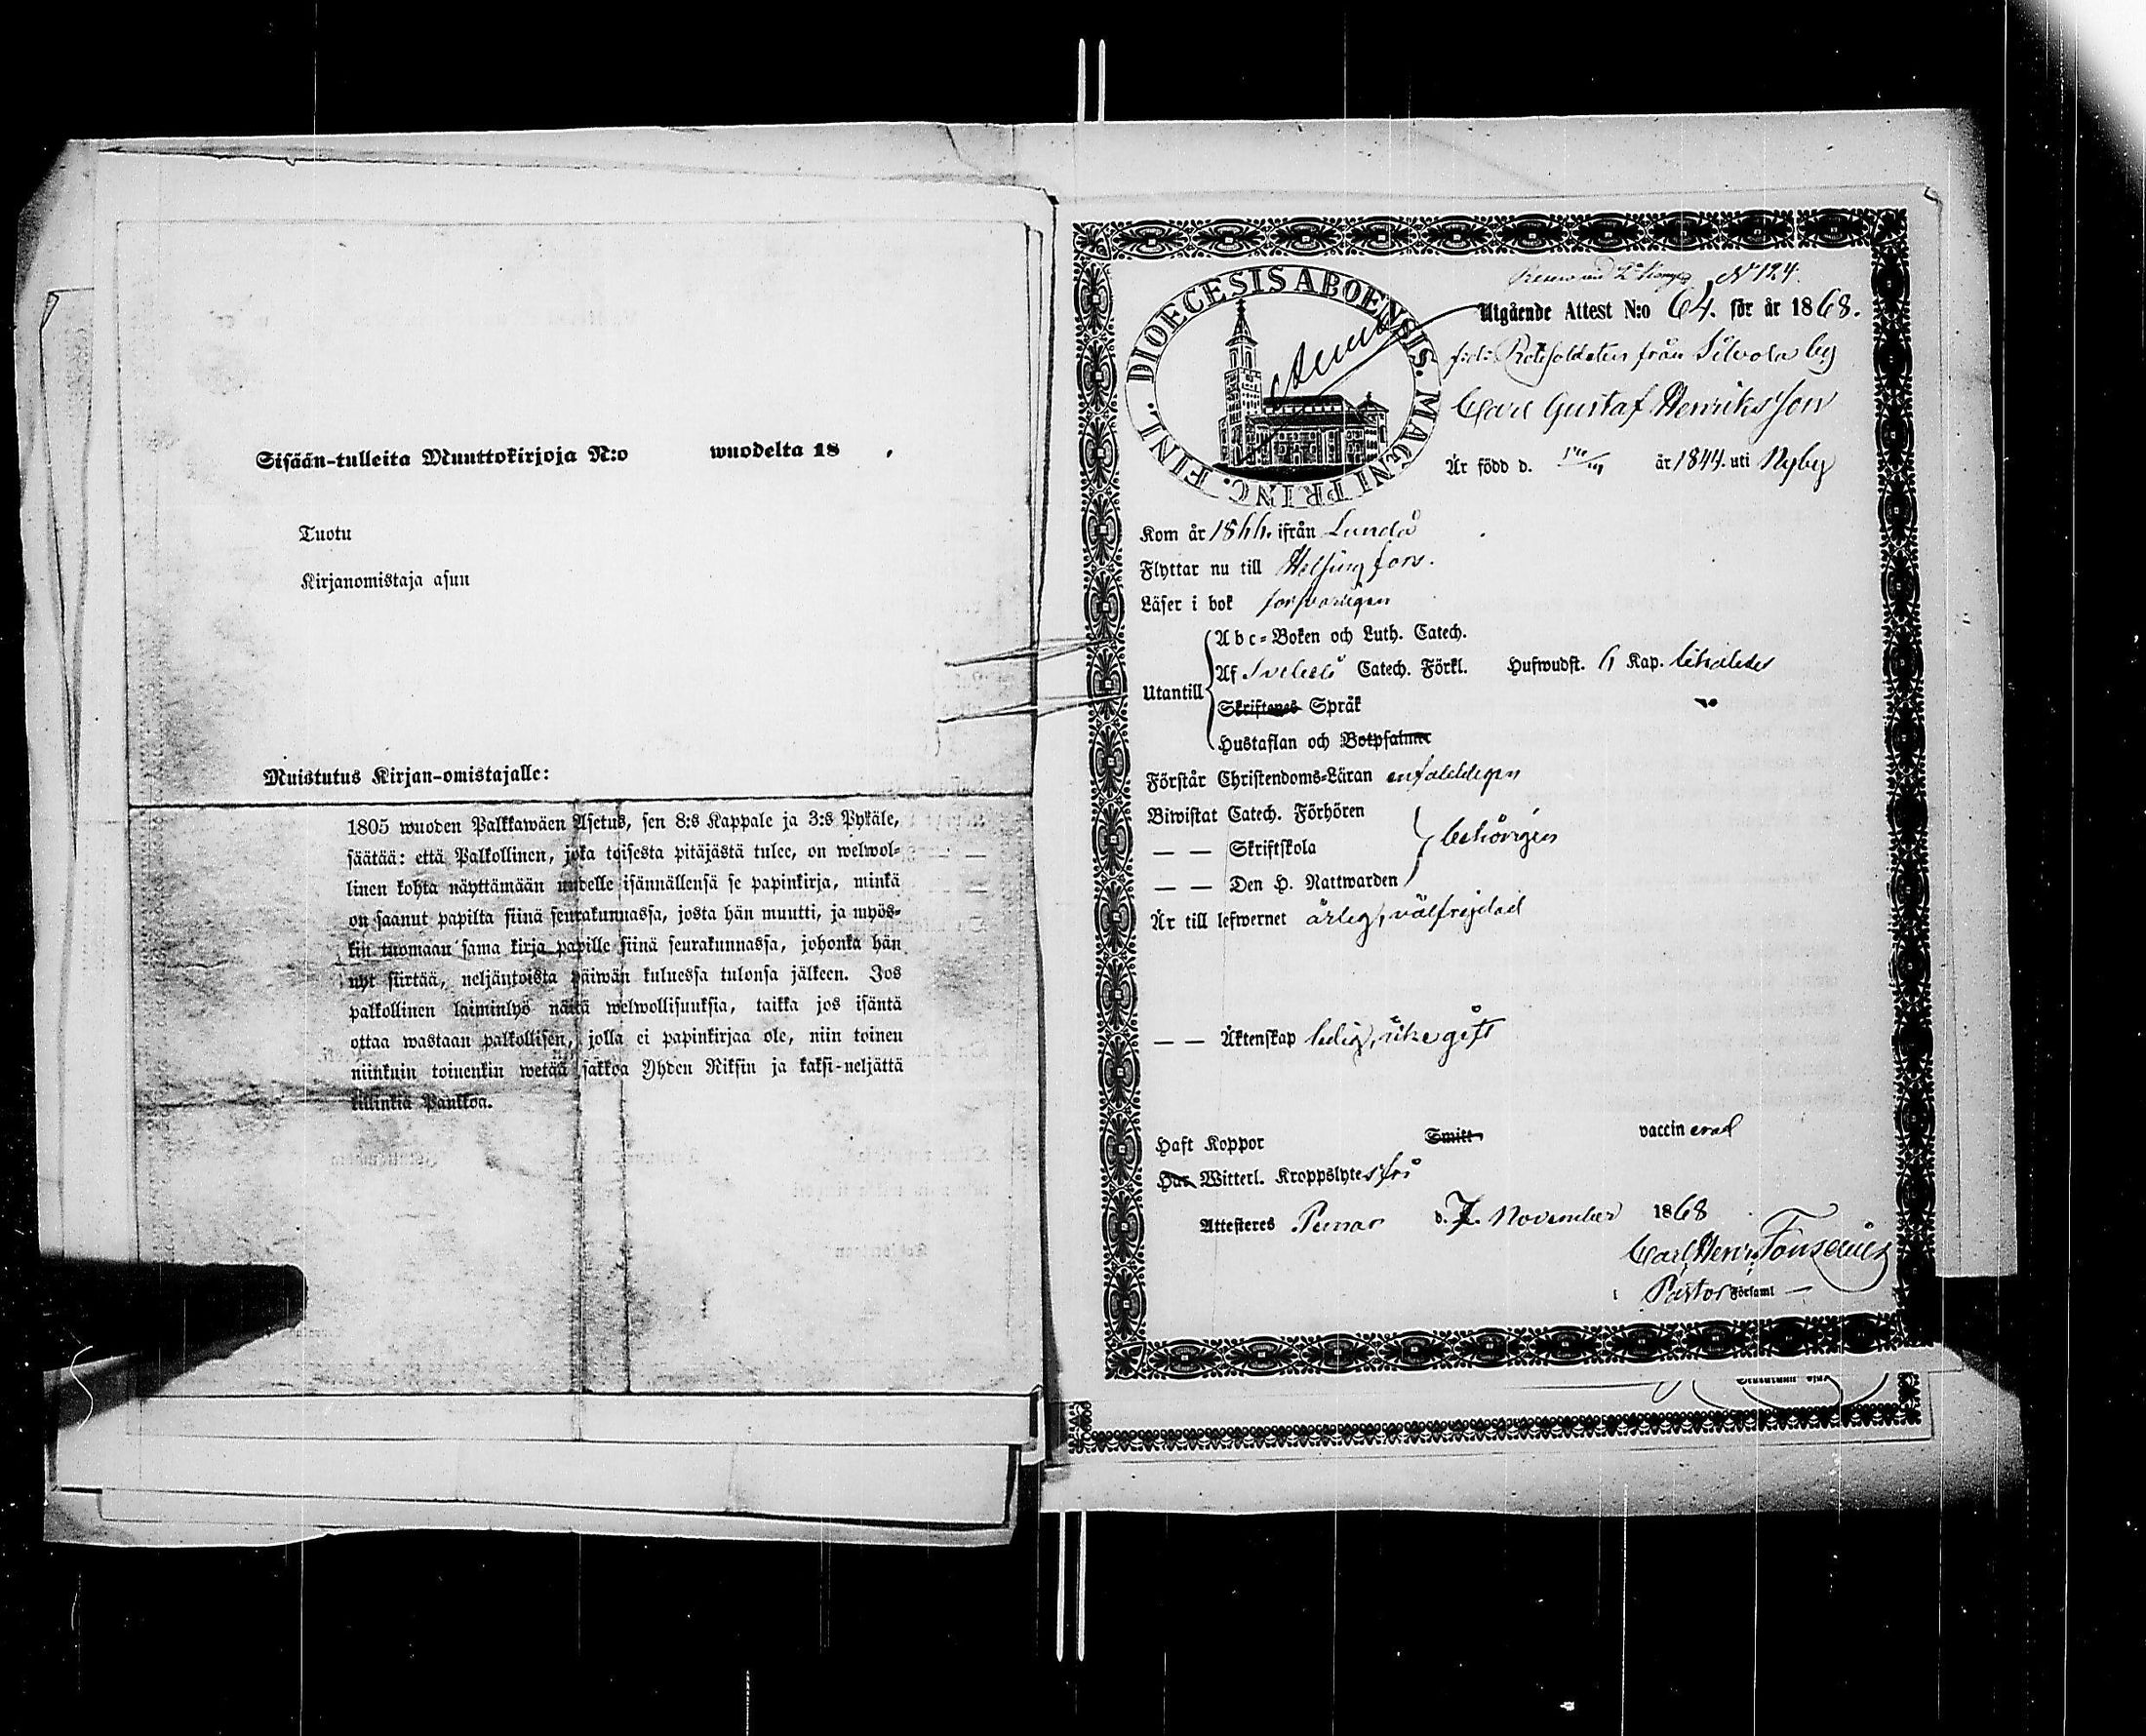 Sisään-tulleita Muuttokirjoja N:o wuodelta 18 .
Tuotu
Kirjanomistaja asuu
Muistutus Kirjan-omistajalle:
1805 wuoden Palkkawäen Asetus, sen 8:s Kappale ja 3:s Pykäle,
säätää: että Palkollinen, joka toisesta pitäjästä tulee, on welwol-
linen kohta näyttämään uudelle isännällensä se papinkirja, minkä
on saanut papilta siinä seurakunnassa, josta hän muutti, ja myös-
kin tuomaan sama kirja papille siinä seurakunnassa, johonka hän
nyt siirtää, neljäntoista päiwän kuluessa tulonsa jälkeen. Jos
palkollinen laiminlyö näitä welwollisuuksia, taikka jos isäntä
ottaa wastaan palkollisen, jolla ei papinkirjaa ole, niin toinen
niinkuin toinenkin wetää sakkoa Yhden Riksin ja kaksi-neljättä
killinkiä Pankkoa.
DIOECESIS ABOENSIS. MAGNI PRINC. FINL.
N 124.
Utgående Attest N:o 64. för år 1868.
Rotesoldaten från Silvola by
Carl Gustaf Henriksson
Är född d. år 1844. uti Nyby
Kom år 1866. ifrån Lundo
Flyttar nu till Helsingfors.
Läser i bok försvarligen
Utantill
Abc-Boken och Luth. Catech.
Af Svebelii Catech. Förkl. Hufwudst. 6 Kap. likaledes
Skriftenes Språk
Hustaflan och Botpsalmer
Förstår Christendoms-Läran enfaldeligen
Biwistat Catech. Förhören
— — Skriftskola behörigen
— — Den H. Nattwarden
Är till lefwernet ärlig, välfrejdad
— — Äktenskap ledig, icke gift
Haft Koppor Smitt vaccinerad
Har Witterl. Kroppslytes fri
Attesteres Pemar d. 7. November 1868
Carl Henr. Fonselius
i Pastor Församl —